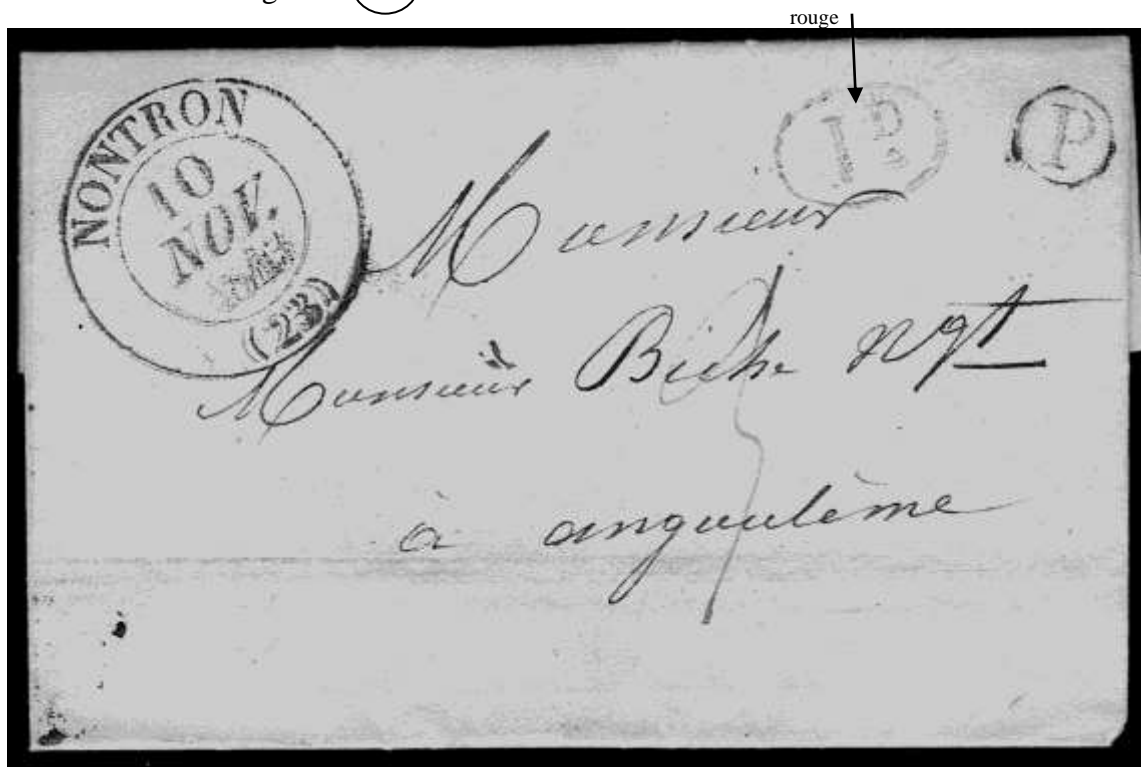 rouge
NONTRON
10
NOV.
(23)
1D.
P
Monsieur
Monsieur Ngt
à angoulême